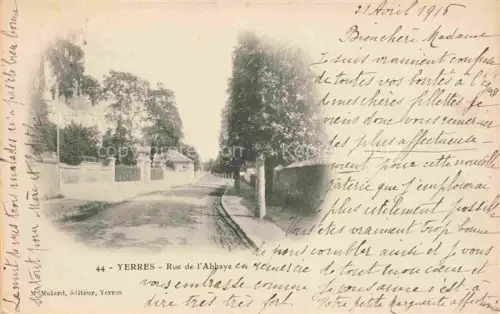 21 Avril 1916
Bien chère Madame
Je suis vraiment confuse
de toutes vos bontés à l'égard
de mes chères fillettes, je
viens donc vous remercier
des plus affectueuse-
ment pour cette nouvelle
gaterie que j'emploierai
le plus utilement possible
vous êtes vraiment trop bonne
de nous combler ainsi et je vous
en remercie de tout mon cœur et
vous embrasse comme je vous aime c'est à
dire très très fort. Votre petite Marguerite affectionnée
La nuit de mes trois malades n'a pas été bien bonne
surtout pour Marie et
44 - YERRES - Rue de l'Abbaye
Mulard, éditeur, Yerres